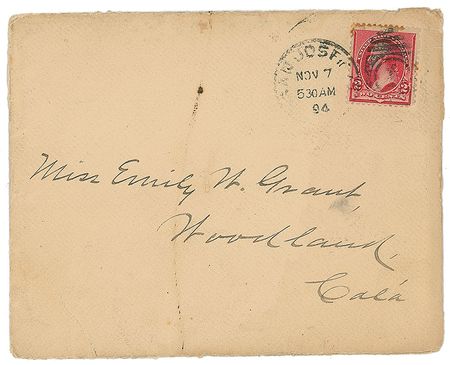 SAN JOSE
NOV 7
530AM
94
2 2
Miss Emily W. Grant,
Woodland,
Cala